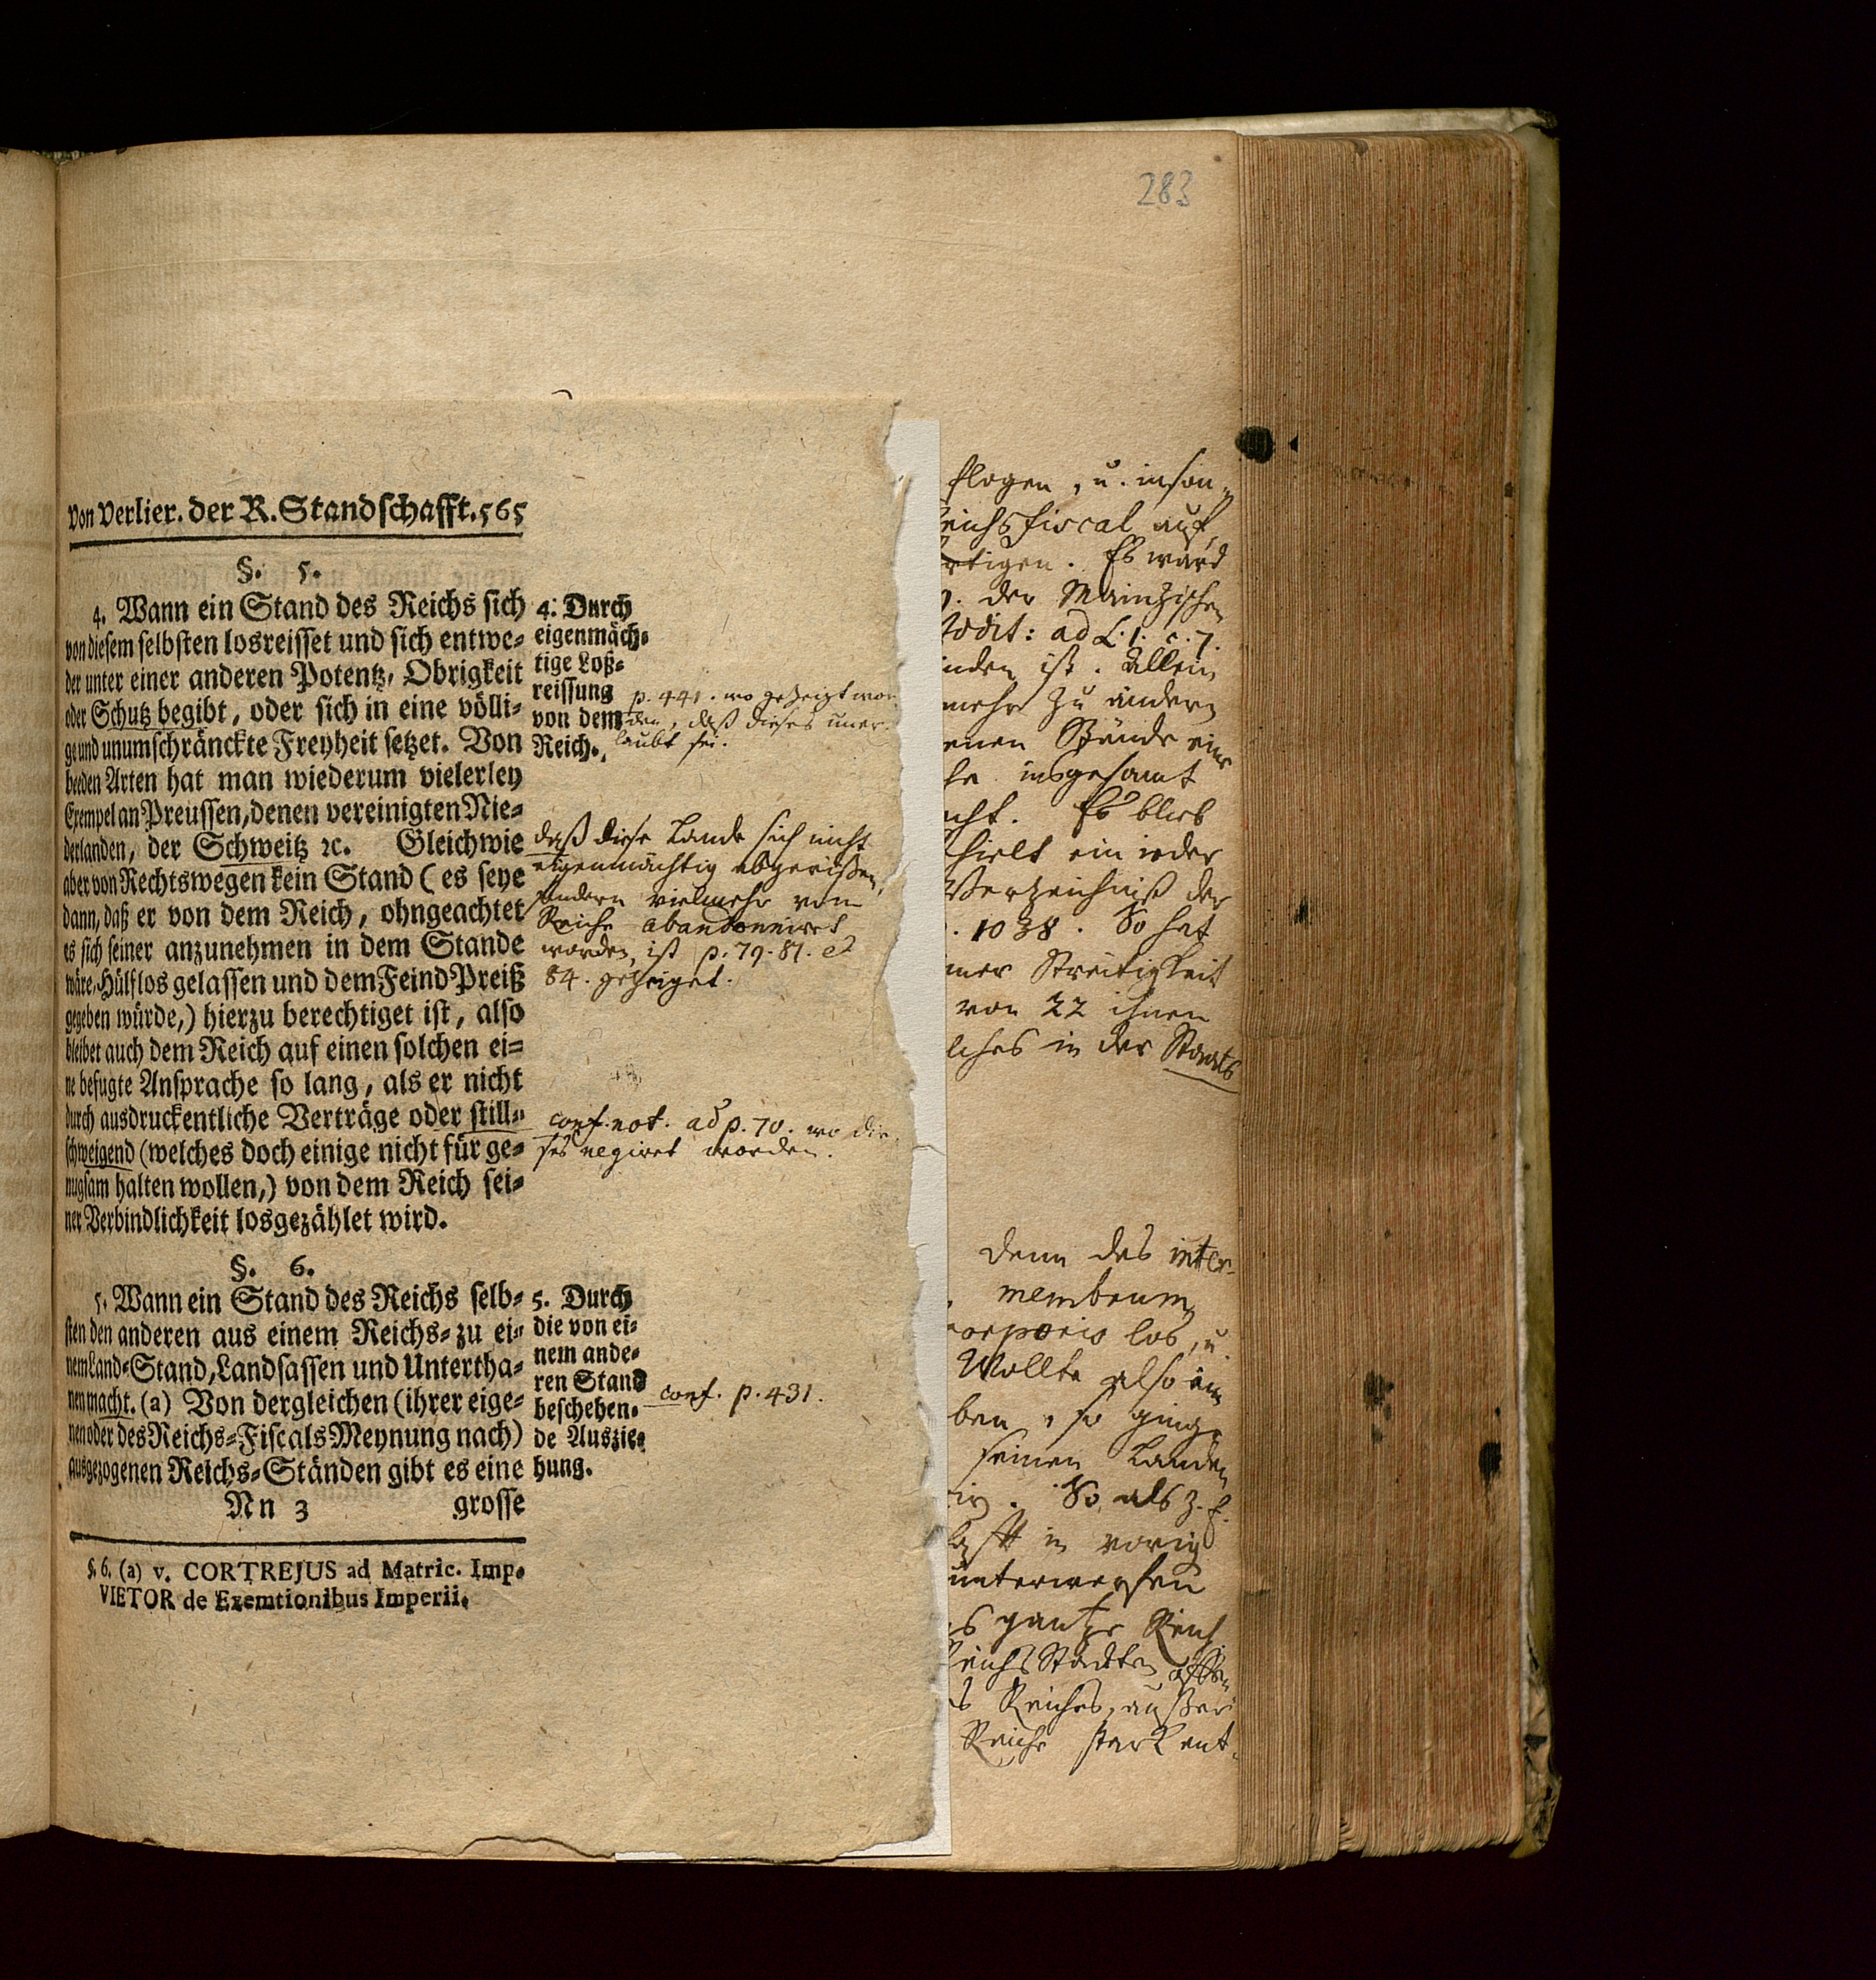 283
Von Verlier. der R. Standschafft. 565
§. 5.
4. Wann ein Stand des Reichs sich
von diesem selbsten losreisset und sich entwe-
der unter einer anderen Potentz, Obrigkeit
oder Schutz begibt, oder sich in eine völli-
ge und unumschränckte Freyheit setzet. Von
beeden Arten hat man wiederum vielerley
Exempel an Preussen, denen vereinigten Nie-
derlanden, der Schweitz ꝛc. Gleichwie
aber von Rechtswegen kein Stand (es seye
dann, daß er von dem Reich, ohngeachtet
es sich seiner anzunehmen in dem Stande
wäre, Hülflos gelassen und dem Feind Preiß
gegeben würde,) hierzu berechtiget ist, also
bleibet auch dem Reich auf einen solchen ei-
ne befugte Ansprache so lang, als er nicht
durch ausdruckentliche Verträge oder still-
schweigend (welches doch einige nicht für ge-
nugsam halten wollen,) von dem Reich sei-
ner Verbindlichkeit losgezählet wird.
4. Durch
eigenmäch-
tige Loß-
reissung
von dem
Reich.
p. 441. wo gezeigt wor-
den, daß dieses uner-
laubt sei.
daß diese Lande sich nicht
eigenmächtig abgerißen,
sondern vielmehr vom
Reiche abandonniret
worden, ist p. 79. 81. et
84. gezeiget.
conf. not. ad p. 70. wo die-
ses negiret worden.
§. 6.
5. Wann ein Stand des Reichs selb-
sten den anderen aus einem Reichs- zu ei-
nem Land-Stand, Landsassen und Untertha-
nen macht. (a) Von dergleichen (ihrer eige-
nen oder des Reichs-Fiscals Meynung nach)
ausgezogenen Reichs-Ständen gibt es eine
Nn 3 grosse
5. Durch
die von ei-
nem ande-
ren Stand
beschehen-
de Auszie-
hung.
conf. p. 431.
§. 6. (a) v. CORTREJUS ad Matric. Imp.
VIETOR de Exemtionibus Imperii.
flogen, u. inson-
eichsfiscal auf
rtigen. Es ward
der Mainzischen
ad L. 1. c. 7.
inden ist. Allein
mehr zu ändern
enen Stände
he insgesamt
cht. Es blieb
hielt ein ieder
Verzeichniß der
. 1038. So hat
iner Streitigkeit
von 22 ihnen
lches in der Staats
denn das inter-
membrum
corporis los, u.
Wollte also ein
ben, so ging
seinen Landen
So als z. E.
in vorig
unterwerfen
s gantze Reich
Reichs Städten
s Reiches, außer
Reiche stark ent-